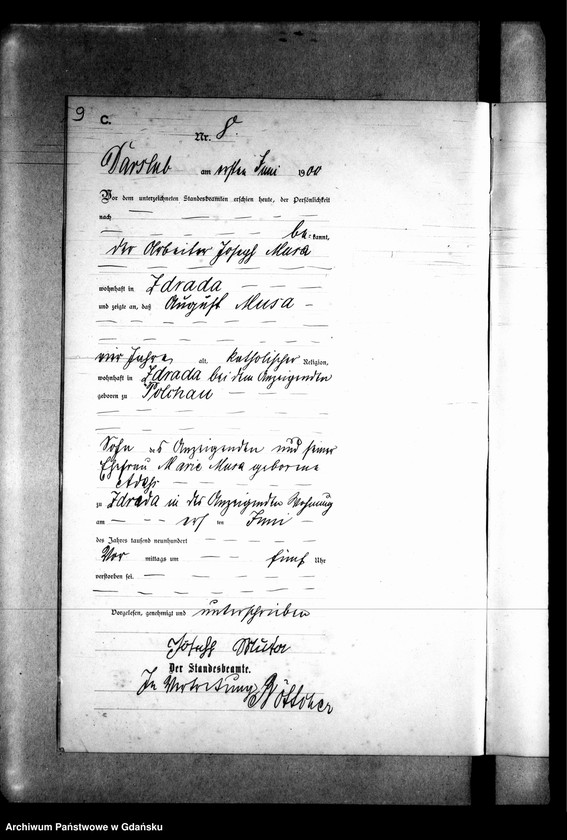 9
C.
Nr. 8.
Darslub am ersten Juni 1900
Vor dem unterzeichneten Standesbeamten erschien heute, der Persönlichkeit
nach
be=kannt,
der Arbeiter Joseph Musa
wohnhaft in Zdrada
und zeigte an, daß August Musa
vier Jahre alt, katholischer Religion,
wohnhaft in Zdrada bei dem Anzeigenden
geboren zu Polchau
Sohn des Anzeigenden und seiner
Ehefrau Marie Musa geborene
zu Zdrada in des Anzeigenden Wohnung
am ersten Juni
des Jahres tausend neunhundert
Vor mittags um fünf Uhr
verstorben sei.
Vorgelesen, genehmigt und unterschrieben
Joseph Musa
Der Standesbeamte.
In Vertretung Böttcher
Archiwum Państwowe w Gdańsku